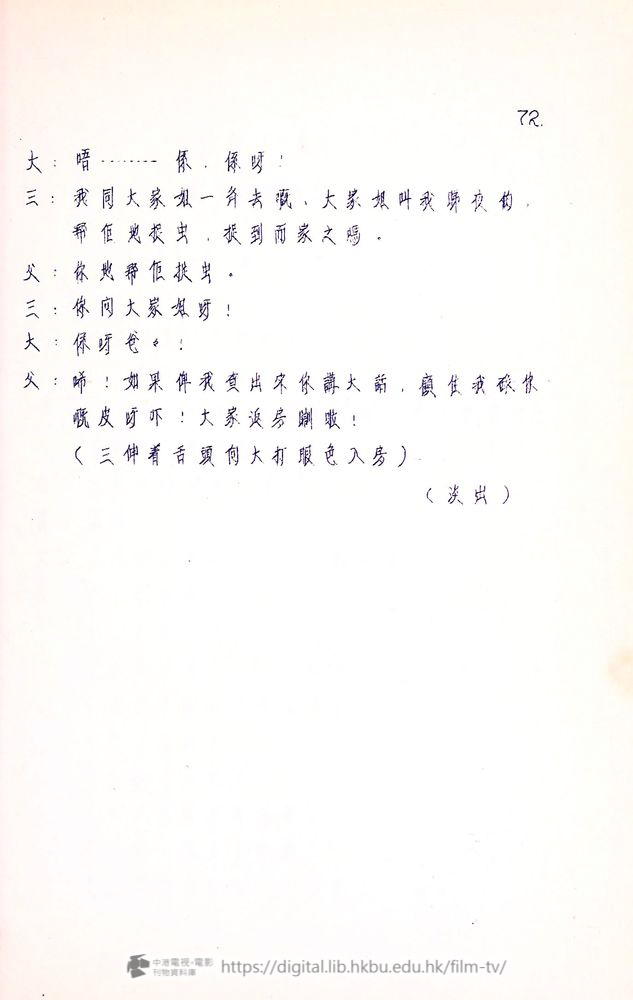 72.
大：唔……… 係．係呀！
三：我同大家姐一齊去嘅、大家姐叫我瞓夜的，
幫佢哋捉虫．捉到而家之嗎。
父：你哋幫佢捉虫。
三：你問大家姐呀！
大：係呀爸々！
父：唏！如果俾我查出來你講大話，顧住我破你
嘅皮呀吓！大家返房瞓啦！
（三伸着舌頭向大打眼色入房）
（淡出）
中港電視·電影
刊物資料庫
https://digital.lib.hkbu.edu.hk/film-tv/